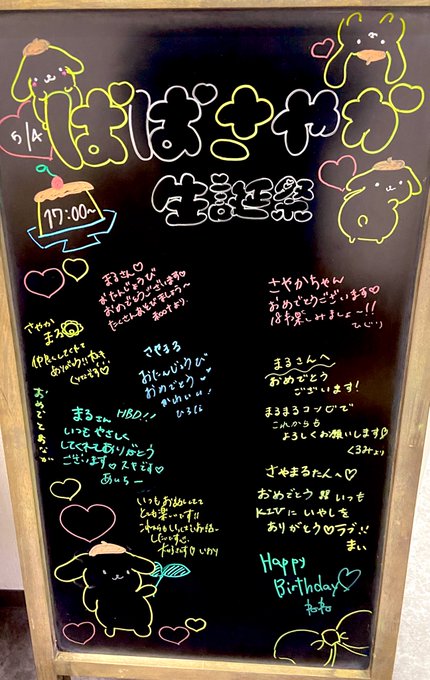 5/4
ばばさやか
生誕祭
17:00~
まるさん♡
おたんじょうび
おめでとうございます♡
たくさんあそびましょう〜
さやかちゃん
おめでとうございます♡
楽しみましょー!!
ひじり
さやか
まる
仲良くしてくれて
ありがとう!!
おめでとう
さやまる
おたんじょうび
おめでとう
かわいい!
まるさんへ
おめでとう
ございます!
まるまるコンビで
これからも
よろしくお願いします♡
くるみより
まるさん HBD!!
いつもやさしく
してくれてありがとう
ございます♡スキです♡
あいちー
さやまるたんへ♡
おめでとう!! いつも
にいやしを
ありがとう♡ラブ!!
まい
いつもお話してて
とても楽しいです!!
これからもいっぱいお話
したいです
Happy
Birthday♡